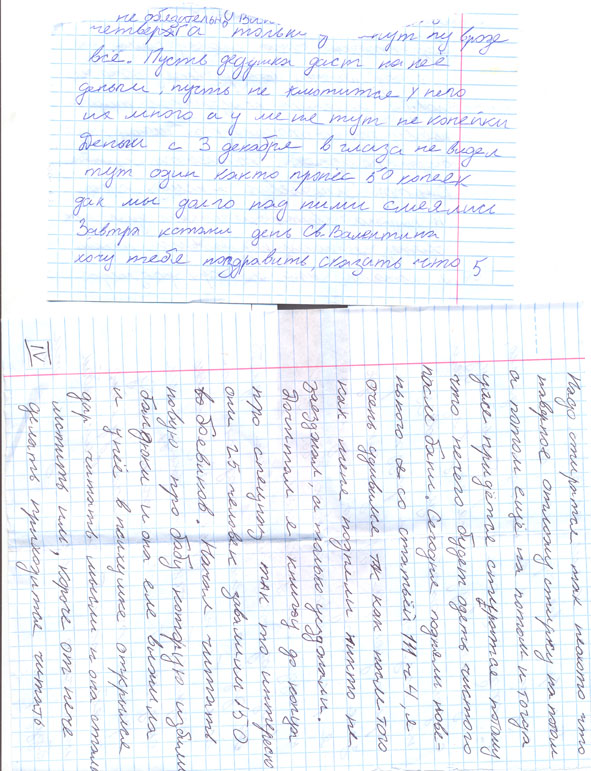 не обязательно Вик.
четверга только у тут ну вроде
всё. Пусть дедушка даст на неё
деньги, пусть не жмотится у него
их много а у меня тут не копейки
Деньги с 3 декабря в глаза не видел
тут один както пронес 50 копеек
дак мы долго над ними смеялись
Завтра кстати день Св. Валентина
хочу тебе поздравить, сказать что 5
IV
Надо стираться так неохто что
наверное отложу стирку на потом
а потом ещё на потом и тогда
уже придётся стираться потому
что нечего будет одеть чистого
после бани. Сегодня подняли нове-
нького со статьёй 111 ч 4, я
очень удивился тк как после того
как меня подняли никто не
заезжал, а только уезжали.
Дочитал я книгу до конца
про спецназ так то интересно
они 25 человек завалили 150
боевиков. Начал читать
новую про бабу которую избили
бандюки и она еле выжила
и у неё в психушке открылся
дар читать мысли и она стала
мстить им, короче от нече
делать приходится читать